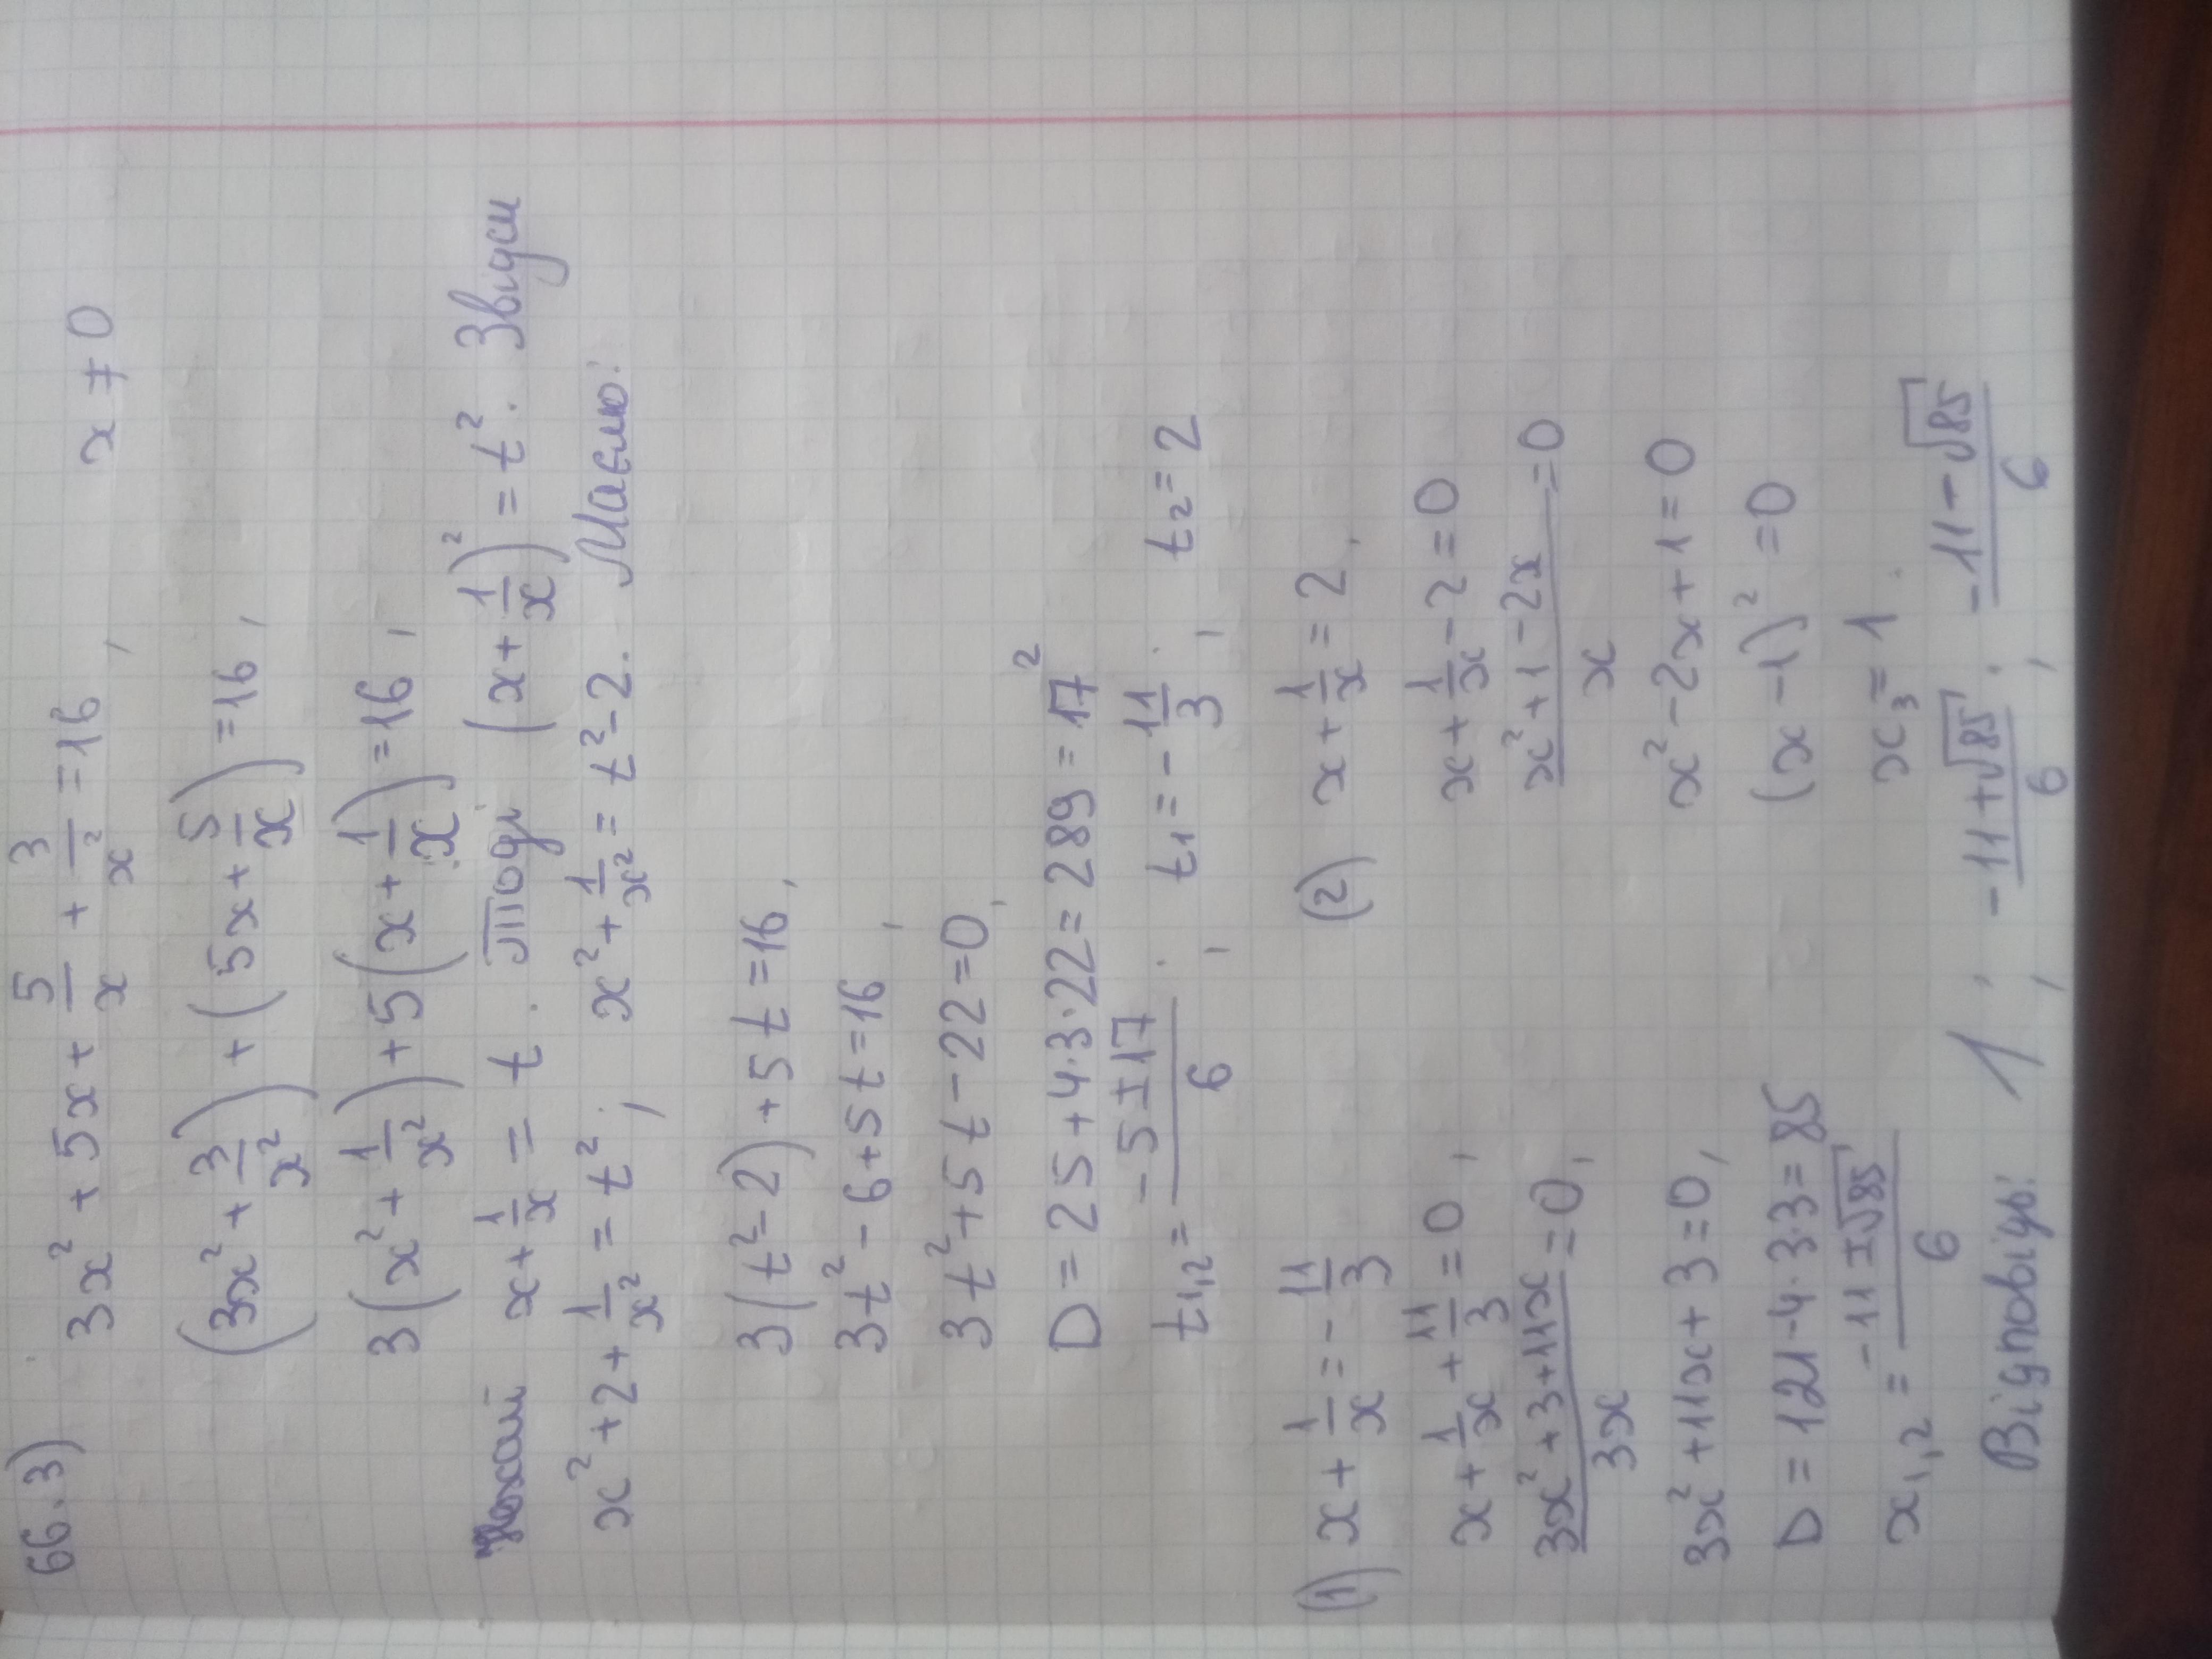 66.3) 3x² + 5x + 5/x + 3/x² = 16, x ≠ 0
(3x² + 3/x²) + (5x + 5/x) = 16,
3(x² + 1/x²) + 5(x + 1/x) = 16,
Нехай x + 1/x = t. Тоді (x + 1/x)² = t². Звідси
x² + 2 + 1/x² = t²; x² + 1/x² = t² - 2. Маємо:
3(t² - 2) + 5t = 16,
3t² - 6 + 5t = 16,
3t² + 5t - 22 = 0,
D = 25 + 4·3·22 = 289 = 17²
t₁,₂ = (-5 ± 17)/6; t₁ = -11/3; t₂ = 2
(1) x + 1/x = -11/3 (2) x + 1/x = 2,
x + 1/x + 11/3 = 0, x + 1/x - 2 = 0
(3x² + 3 + 11x)/3x = 0, (x² + 1 - 2x)/x = 0
3x² + 11x + 3 = 0, x² - 2x + 1 = 0
D = 121 - 4·3·3 = 85 (x - 1)² = 0
x₁,₂ = (-11 ± √85)/6 x₃ = 1.
Відповідь: 1; (-11 + √85)/6; (-11 - √85)/6